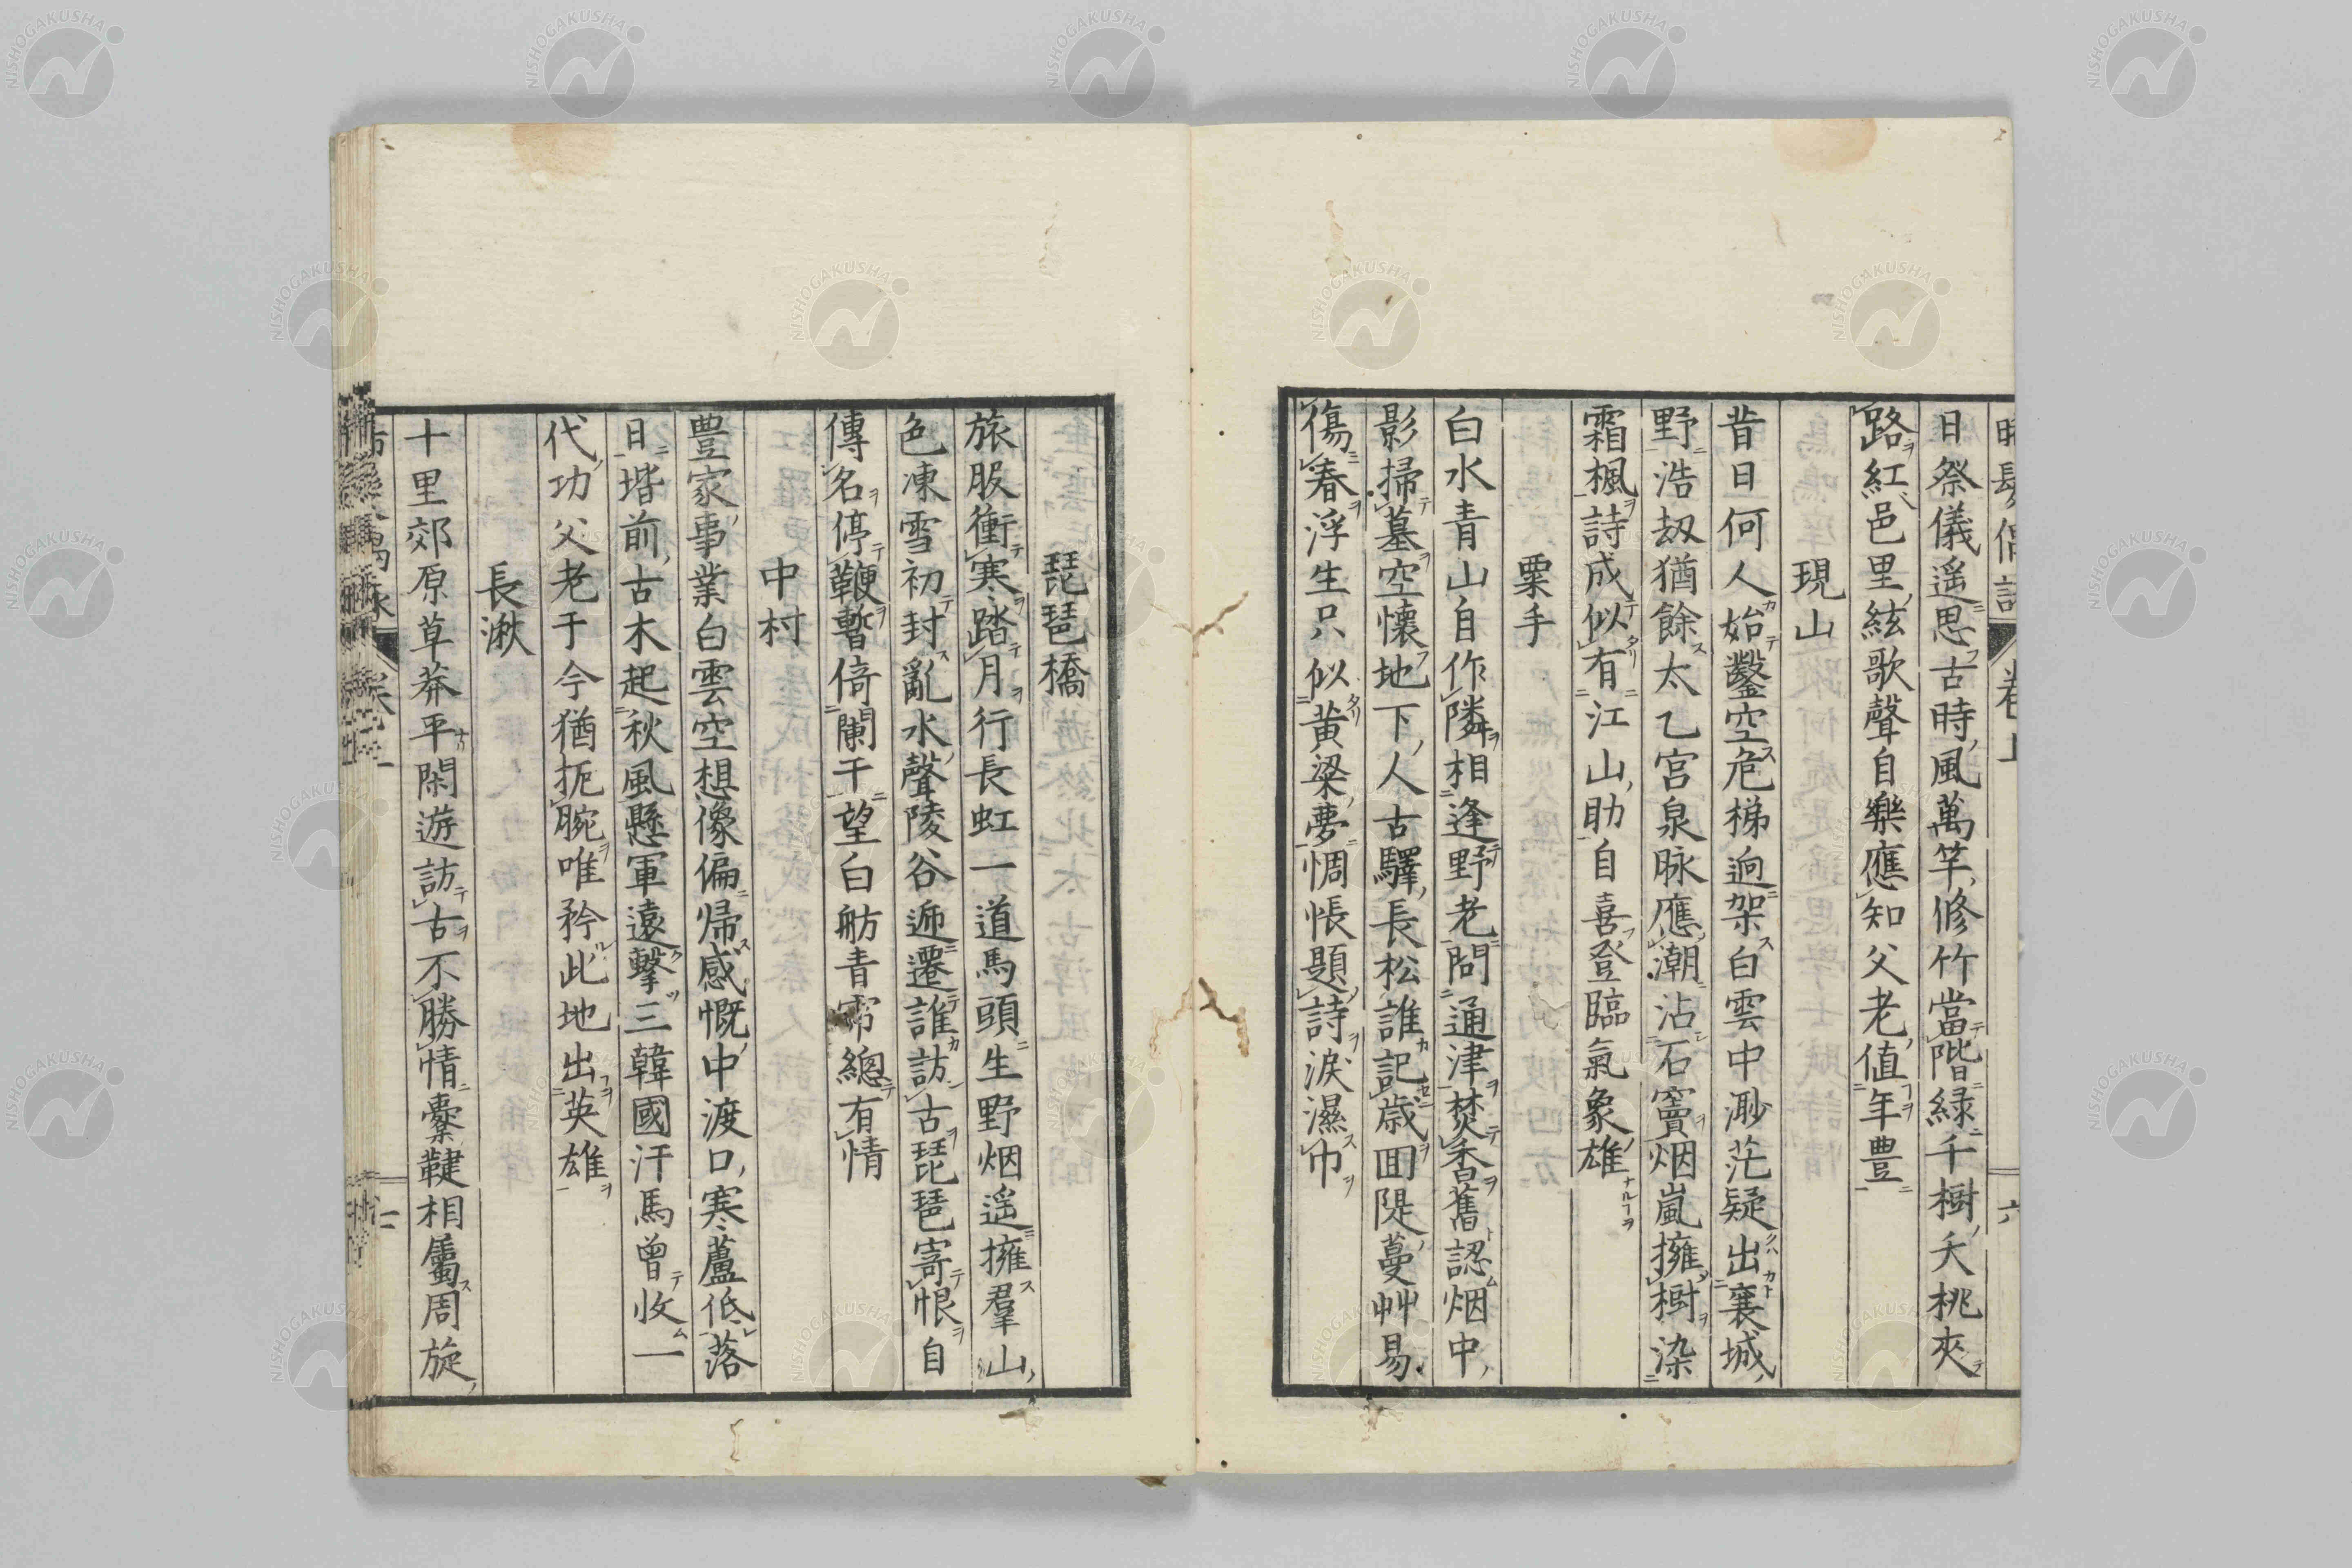 日祭儀遥思古時風萬竿修竹當階緑千樹夭桃夾
路紅邑里絃歌聲自樂應知父老値年豊
現山
昔日何人始鑿空危梯逈架白雲中渺茫疑出襄城
野浩刼猶餘太乙宮泉脉應潮沾石竇烟嵐擁樹染
霜楓詩成似有江山助自喜登臨氣象雄
粟手
白水青山自作隣相逢野老問通津焚香舊認烟中
影掃墓空懷地下人古驛長松誰記歳囬隄蔓艸易
傷春浮生只似黄粱夢惆悵題詩涙濕巾
琵琶橋
旅服衝寒踏月行長虹一道馬頭生野烟遥擁羣山
色凍雪初封亂水聲陵谷逓遷誰訪古琵琶寄恨自
傳名停鞭暫倚闌干望白舫青帘總有情
中村
豊家事業白雲空想像偏帰感慨中渡口寒蘆低落
日堦前古木起秋風懸軍遠擊三韓國汗馬曾收一
代功父老于今猶扼腕唯矜此地出英雄
長湫
十里郊原草莽平閑遊訪古不勝情櫜鞬相属周旋